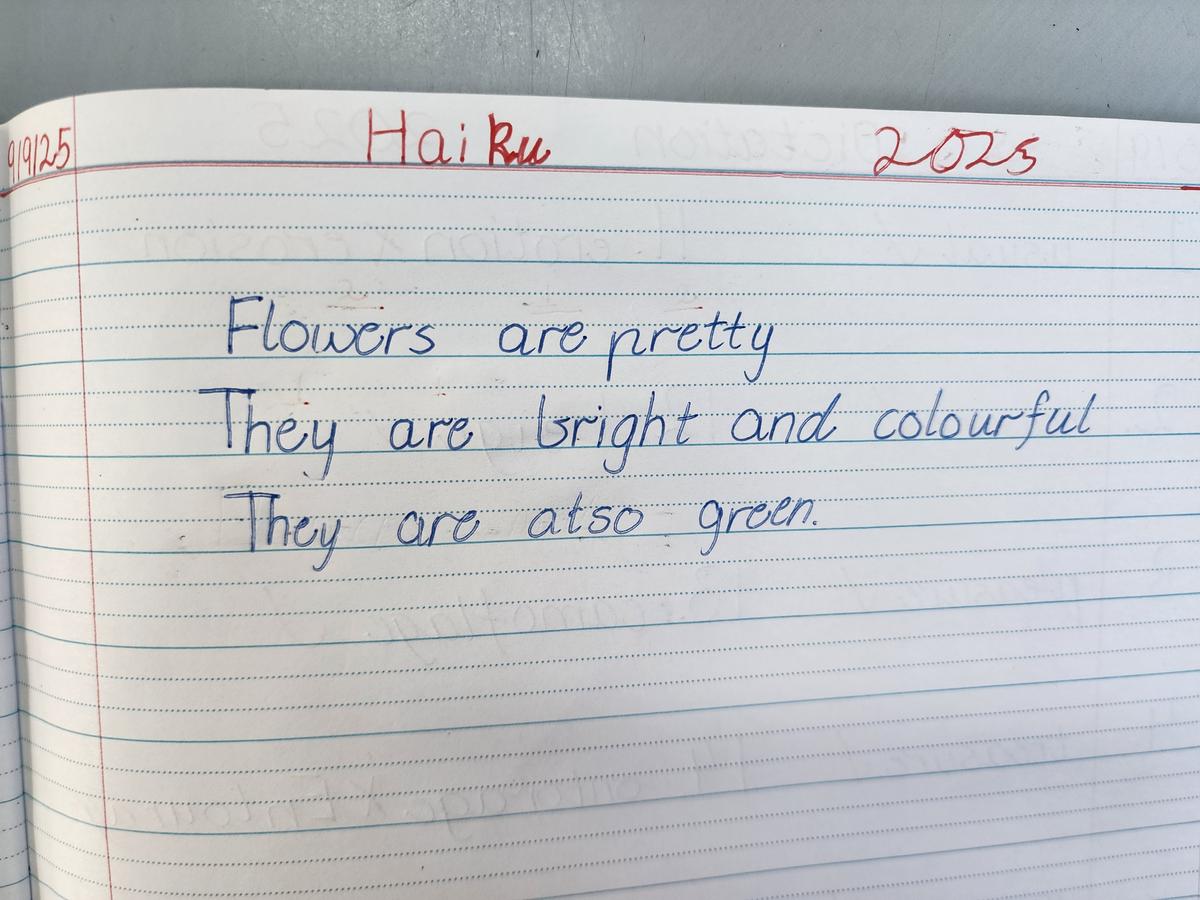 9/9/25 Haiku 2025
Flowers are pretty
They are bright and colourful
They are also green.